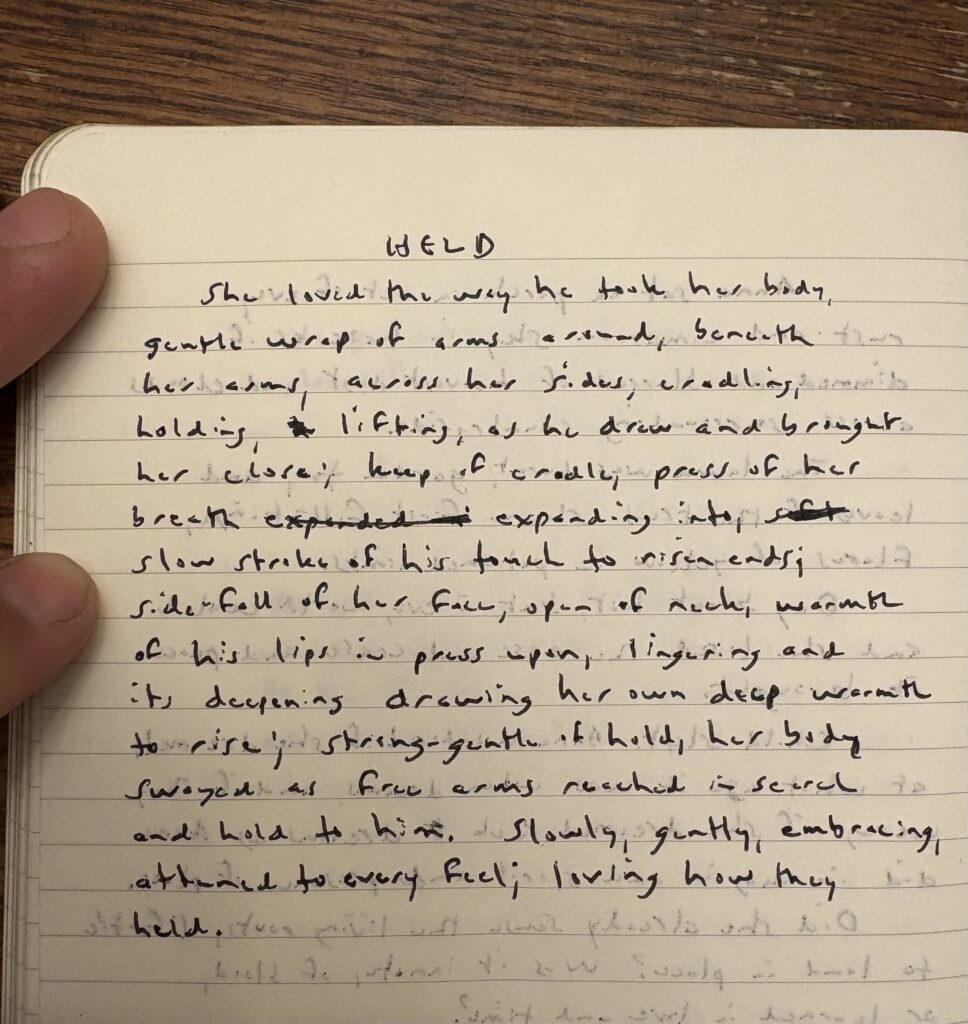 HELD
She loved the way he took her body,
gentle wrap of arms around, beneath
her arms, across her sides, cradling,
holding, lifting, as he drew and brought
her close; keep of cradle, press of her
breath expanded expanding into, soft
slow stroke of his touch to risen ends;
side-fall of her face, open of neck, warmth
of his lips in press upon, lingering and
its deepening drawing her own deep warmth
to rise; strong-gentle of hold, her body
swayed as free arms reached in search
and hold to him. Slowly, gently, embracing,
attuned to every feel; loving how they
held.
Did she already sense the living
to land in place? Was it innate, of blood,
or learned in love and time?